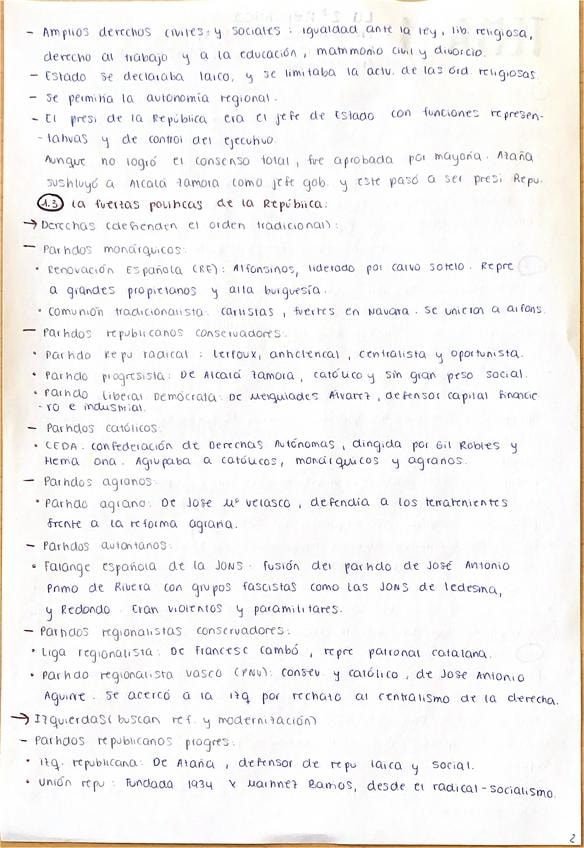 - Amplios derechos civiles y sociales: igualdad ante la ley, lib. religiosa,
derecho al trabajo y a la educación, matrimonio civil y divorcio.
- Estado se declaraba laico, y se limitaba la actv. de las órd. religiosas
- Se permitía la autonomía regional.
- El presi de la República era el jefe de Estado con funciones represen-
-tativas y de control del ejecutivo.
Aunque no logró el consenso total, fue aprobada por mayoría. Azaña
sustituyó a Alcalá Zamora como jefe gob. y este pasó a ser presi Repu.
1.3 La fuerzas políticas de la República:
→ Derechas (defienden el orden tradicional):
- Partidos monárquicos:
• Renovación Española (RE): Alfonsinos, liderado por calvo sotelo. Repre
a grandes propietarios y alta burguesía.
• Comunión tradicionalista: carlistas, fuertes en Navarra. Se unieron a alfons.
- Partidos republicanos conservadores:
• Partido Repu radical: Lerroux, anticlerical, centralista y oportunista.
• Partido progresista: De Alcalá Zamora, católico y sin gran peso social.
• Partido Liberal Demócrata: De Melquiades Álvarez, defensor capital financie
-ro e industrial.
- Partidos católicos:
• CEDA. Confederación de Derechas Autónomas, dirigida por Gil Robles y
Herrera Oria. Agrupaba a católicos, monárquicos y agrarios.
- Partidos agrarios:
• Partido agrario: De Jose Mª Velasco, defendía a los terratenientes
frente a la reforma agraria.
- Partidos autoritarios:
• Falange española de la JONS: fusión del partido de José Antonio
Primo de Rivera con grupos fascistas como las JONS de ledesma,
y Redondo. Eran violentos y paramilitares.
- Partidos regionalistas conservadores:
• Liga regionalista: De Francesc Cambó, repre patronal catalana.
• Partido regionalista vasco (PNV): conserv y católico, de Jose Antonio
Aguirre. Se acercó a la izq por rechazo al centralismo de la derecha.
→ Izquierdas (buscan ref. y modernización)
- Partidos republicanos progres:
• Izq. republicana: De Azaña, defensor de repu laica y social.
• Unión repu: Fundada 1934 x Martínez Barrios, desde el radical-socialismo.
2